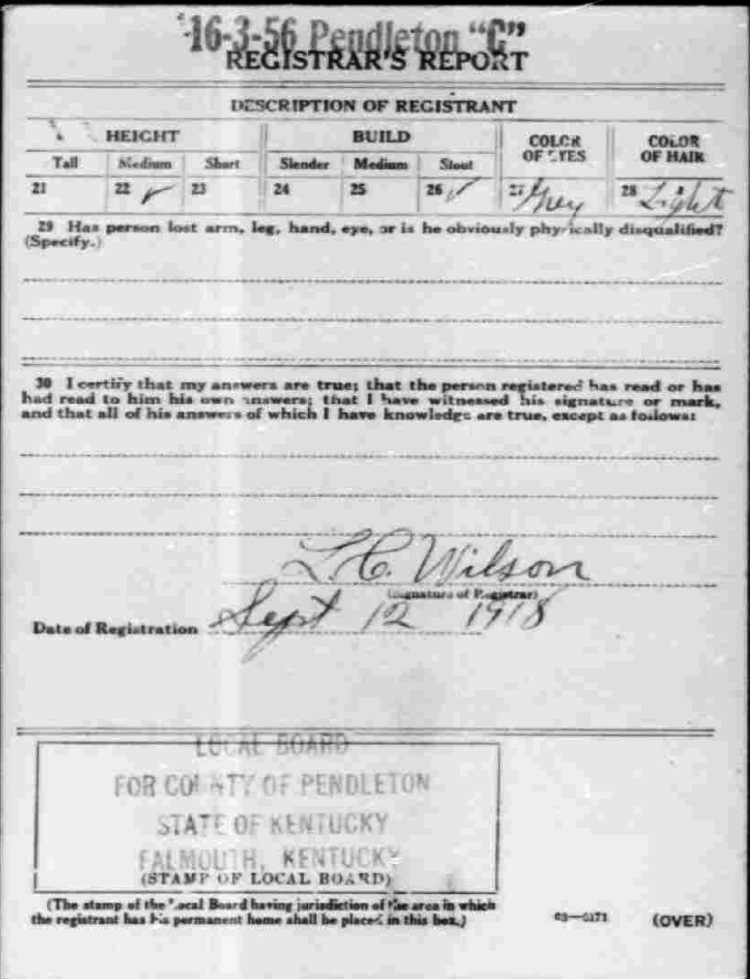 16-3-56 Pendleton "C"
REGISTRAR'S REPORT
DESCRIPTION OF REGISTRANT
HEIGHT BUILD COLOR OF EYES COLOR OF HAIR
Tall Medium Short Slender Medium Stout
21 22 ✓ 23 24 25 26 ✓ 27 Grey 28 Light
29 Has person lost arm, leg, hand, eye, or is he obviously physically disqualified?
(Specify.)
30 I certify that my answers are true; that the person registered has read or has
had read to him his own answers; that I have witnessed his signature or mark,
and that all of his answers of which I have knowledge are true, except as follows:
L. C. Wilson
(Signature of Registrar)
Date of Registration Sept 12 1918
LOCAL BOARD
FOR COUNTY OF PENDLETON
STATE OF KENTUCKY
FALMOUTH, KENTUCKY
(STAMP OF LOCAL BOARD)
(The stamp of the Local Board having jurisdiction of the area in which
the registrant has his permanent home shall be placed in this box.)
03—6171 (OVER)